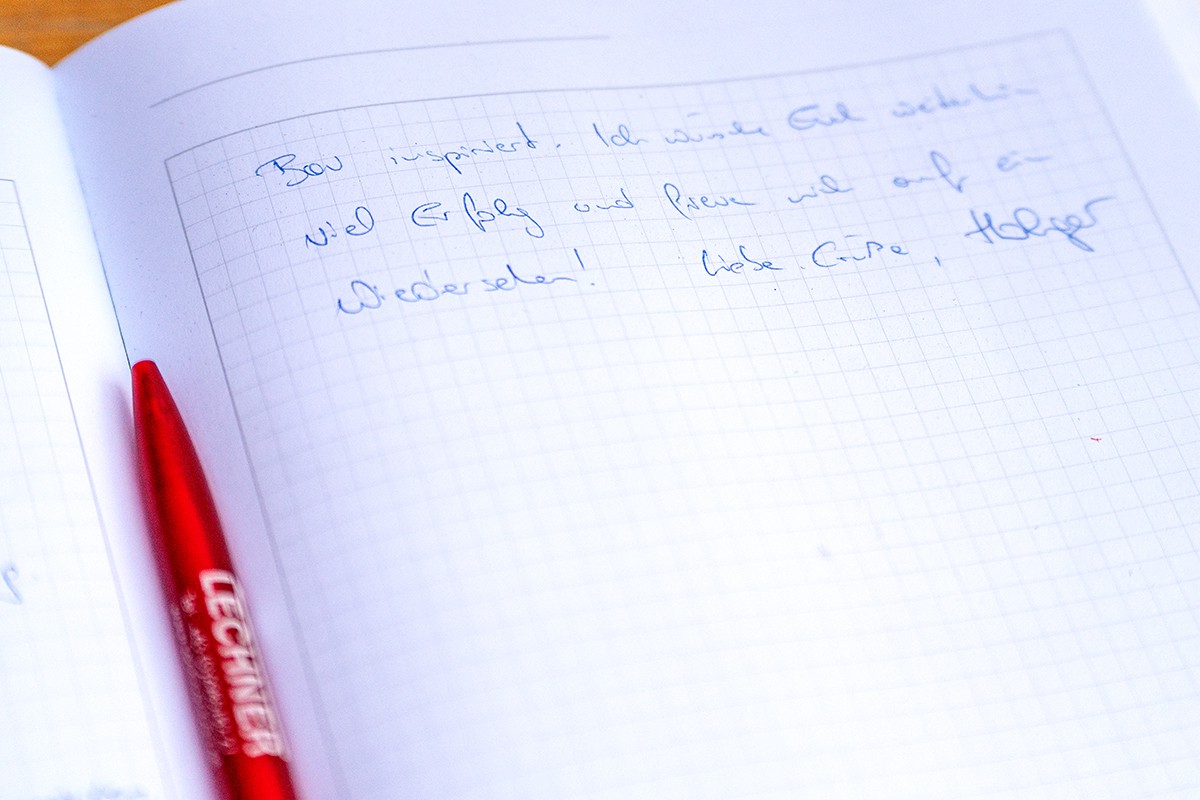 Bau inspiriert. Ich wünsche Euch weiterhin
viel Erfolg und freue mich auf ein
Wiedersehen! Liebe Grüße, Holger
LECHNER